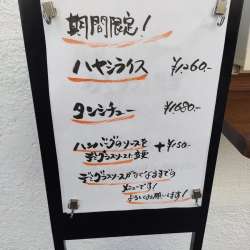 期間限定!
ハヤシライス ¥1,260-
タンシチュー ¥1,680-
ハンバーグのソースを
デミグラスソースに変更 +¥150-
デミグラスソースがなくなるまでの
メニューです!
よろしくお願いします!